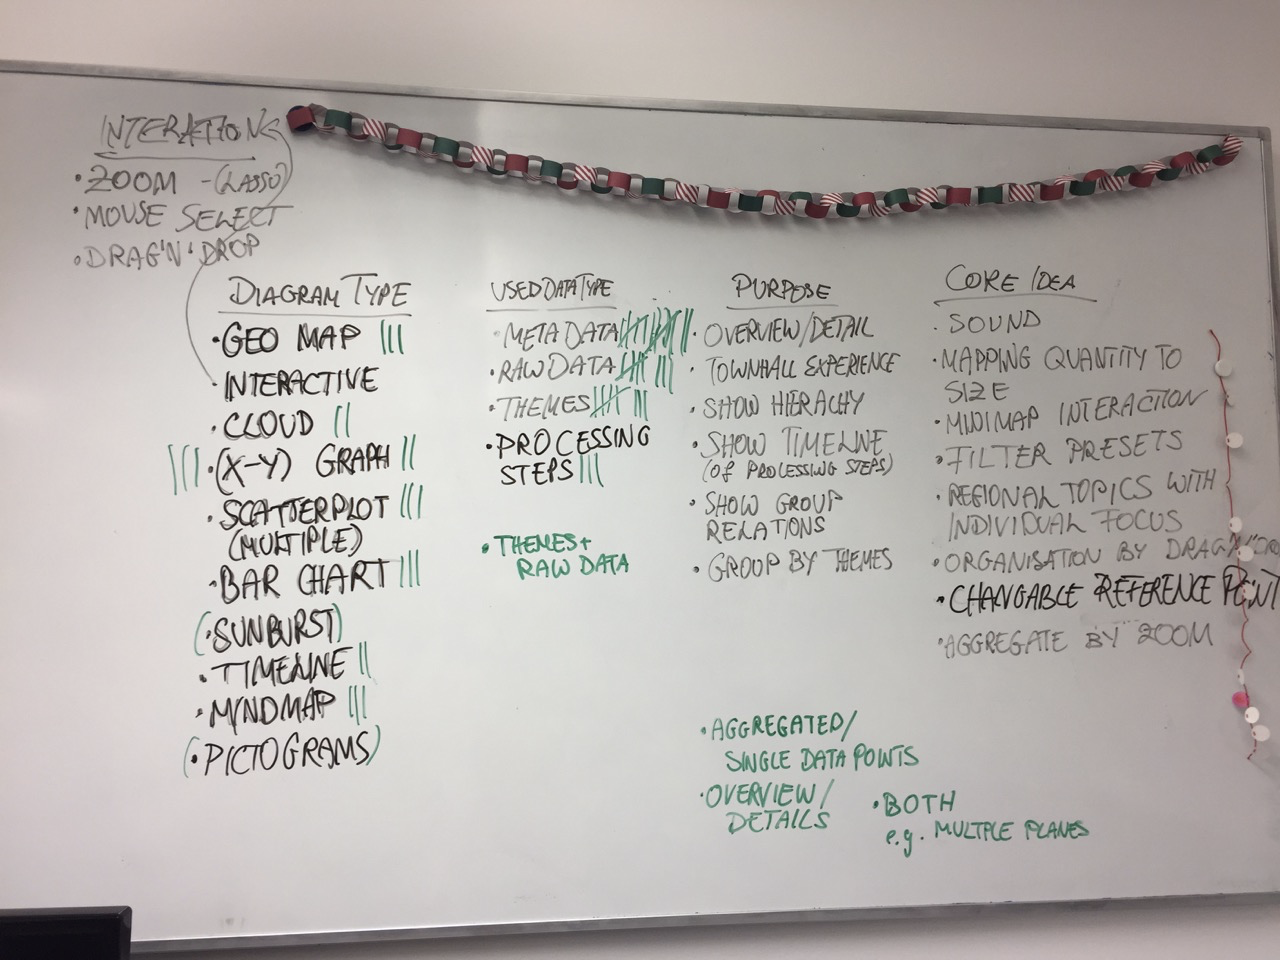 INTERATIONS
• ZOOM - (LASSO)
• MOUSE SELECT
• DRAG'N'DROP
DIAGRAM TYPE
• GEO MAP
• INTERACTIVE
• CLOUD
• (X-Y) GRAPH
• SCATTERPLOT
(MULTIPLE)
• BAR CHART
(• SUNBURST)
• TIMELINE
• MINDMAP
(• PICTOGRAMS)
USED DATA TYPE
• META DATA
• RAW DATA
• THEMES
• PROCESSING
STEPS
• THEMES +
RAW DATA
PURPOSE
• OVERVIEW/DETAIL
• TOWNHALL EXPERIENCE
• SHOW HIERACHY
• SHOW TIMELINE
(OF PROCESSING STEPS)
• SHOW GROUP
RELATIONS
• GROUP BY THEMES
• AGGREGATED/
SINGLE DATA POINTS
• OVERVIEW/
DETAILS
• BOTH
e.g. MULTIPLE PLANES
CORE IDEA
• SOUND
• MAPPING QUANTITY TO
SIZE
• MINIMAP INTERACTION
• FILTER PRESETS
• REGIONAL TOPICS WITH
INDIVIDUAL FOCUS
• ORGANISATION BY
• CHANGABLE REFERENCE POINT
• AGGREGATE BY ZOOM